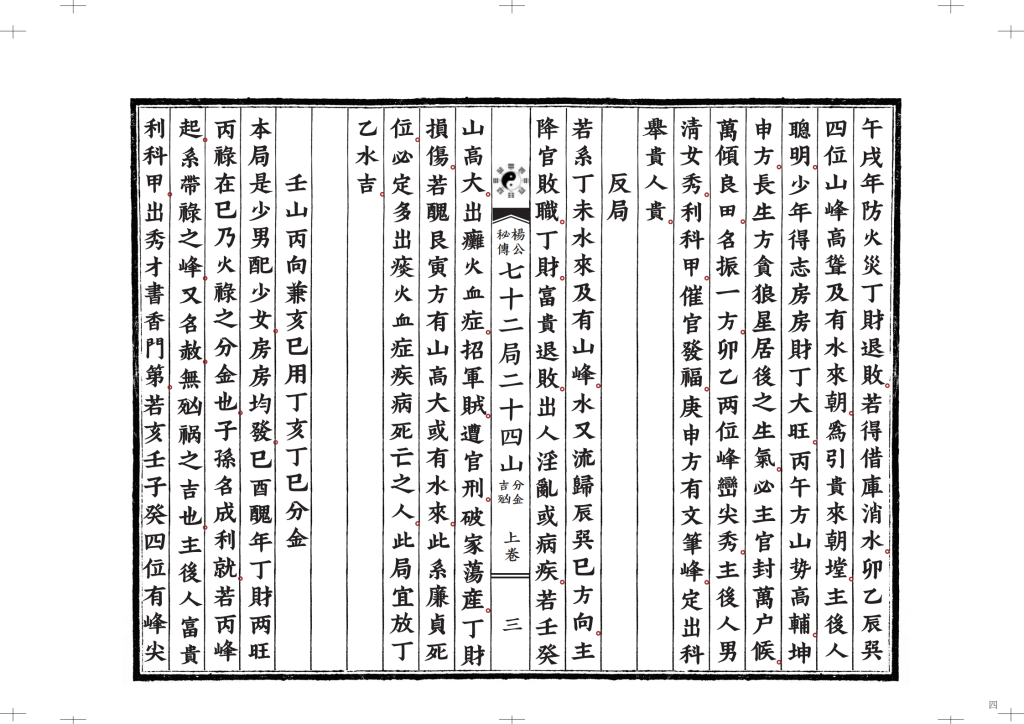 午戌年防火災丁財退敗。若得借庫消水。卯乙辰巽
四位山峰高聳及有水來朝。為引貴來朝堂。主後人
聰明。少年得志房房財丁大旺。丙午方山势高輔。坤
申方。長生方貪狼星居後之生氣。必主官封萬户候。
萬傾良田。名振一方。卯乙两位峰巒尖秀。主後人男
清女秀。利科甲。催官發福。庚申方有文筆峰。定出科
舉貴人貴。
反局
若系丁未水來及有山峰。水又流歸辰巽巳方向。主
降官敗職。丁財。富貴退敗。出人淫亂或病疾。若壬癸
楊公秘傳七十二局二十四山分金吉凶 上卷 三
山高大。出癱火血症。招軍賊。遭官刑。破家蕩産。丁財
損傷。若醜艮寅方有山高大或有水來。此系廉貞死
位。必定多出痰火血症疾病死亡之人。此局宜放丁
乙水吉。
壬山丙向兼亥巳用丁亥丁巳分金
本局是少男配少女。房房均發。巳酉醜年丁財两旺
丙祿在巳乃火祿之分金也。子孫名成利就。若丙峰
起。系帶祿之峰。又名赦。無凶祸之吉也。主後人富貴
利科甲。出秀才書香門第。若亥壬子癸四位有峰尖
四